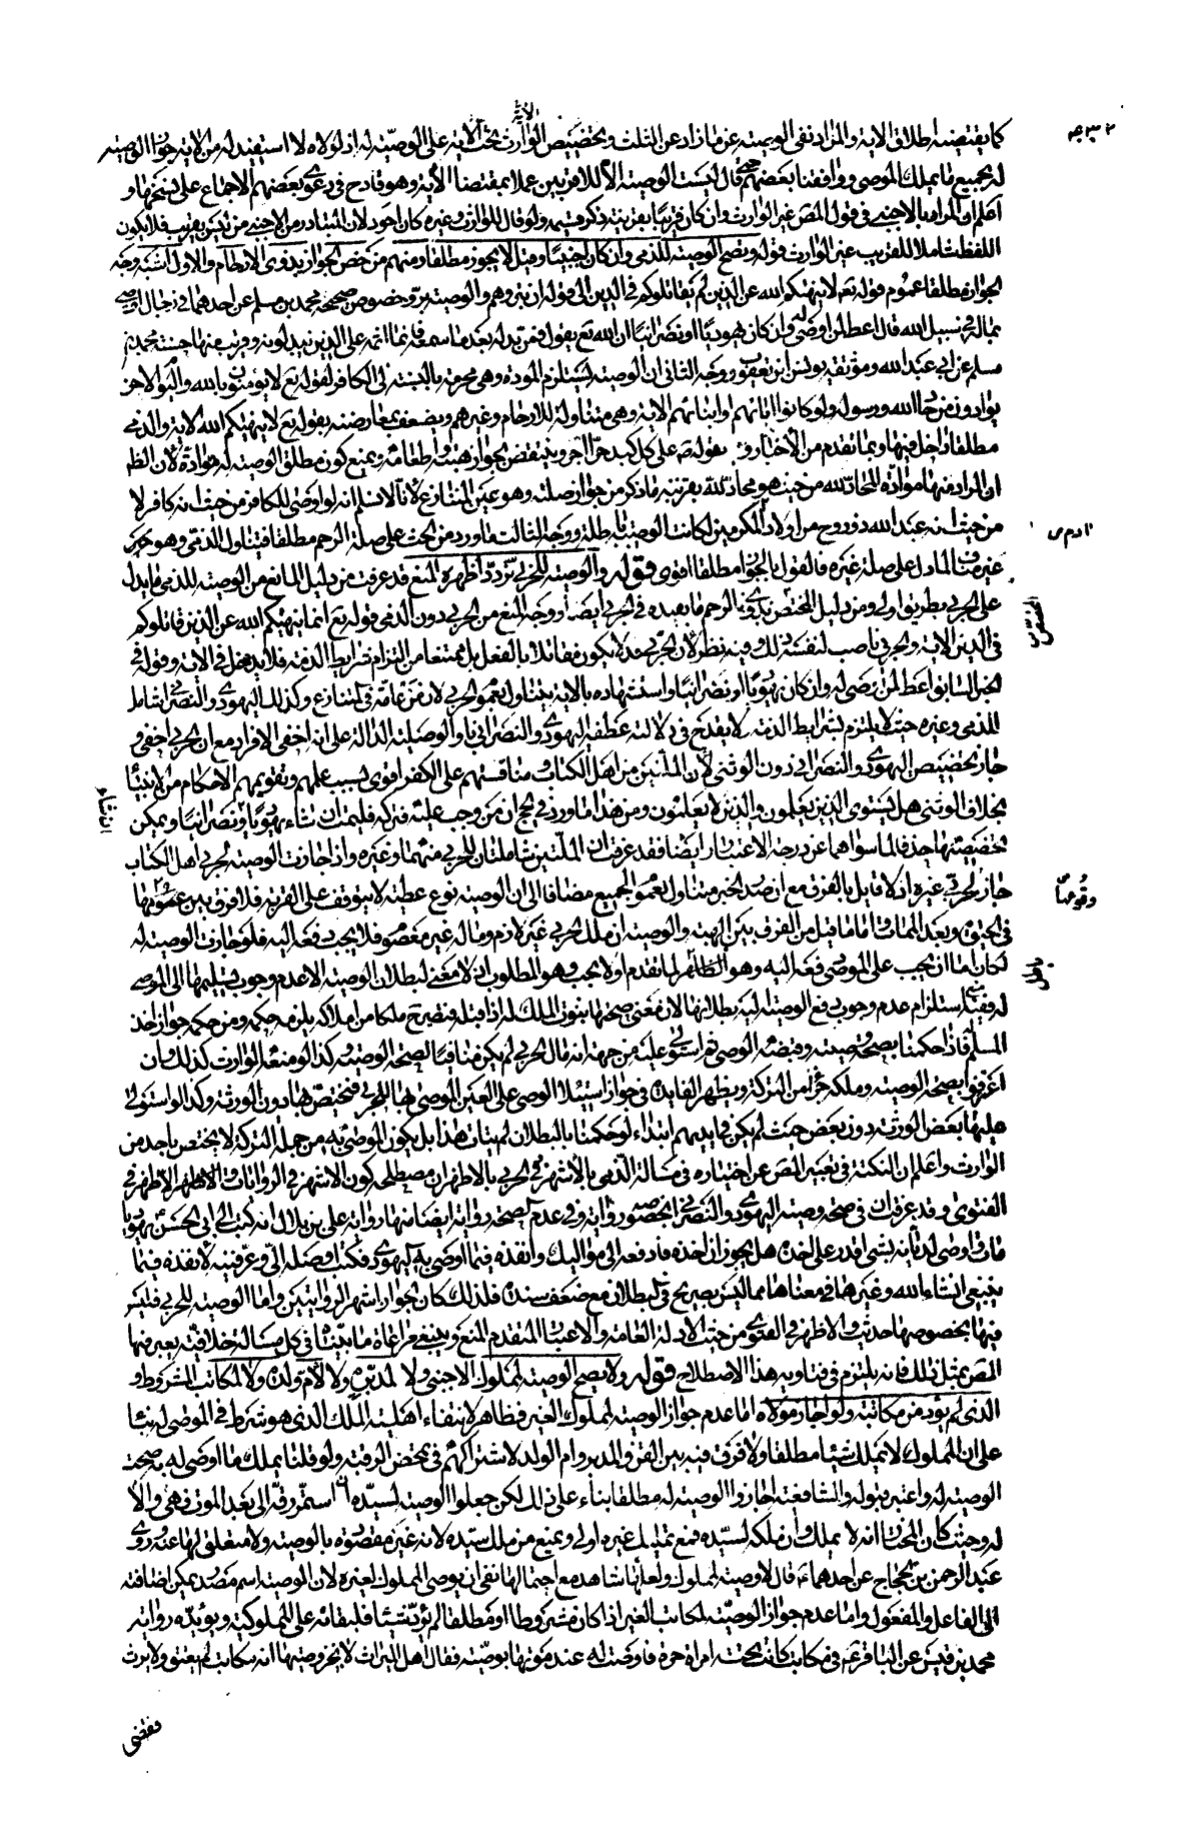 كما يقتضيه اطلاق الاية والمراد نفى الوصيته عن ما زاد عن الثلث وبتخصيص الوارث بحث الاية على الوصيّته له اذ لولاه لا استفيد له من الاية جواز الوصيته
له بجميع ما يملك الموصى ووافقنا بعضهم قال ليست الوصيته الا للاقربين عملا بمقتضا الاية وهو قادح فى دعوى بعضهم الاجماع على نسخها و
اعلم ان المراد بالاجنبى فى قول المصَ غير الوارث وان كان قريبًا بقرينة ذكر قسيمه ولو قال للوارث وغيره كان اجود لان المتبادر من الاجنبى من ليس بقريب فلا يكون
اللفظ شاملا للقريب غير الوارث قوله وتصح الوصيته للذمى وان كان اجنبيًا وقيل لا يجوز مطلقا ومنهم من خص الجواز بذوى الارحام والاول اشبه وجه
الجواز مطلقا عموم قوله تع لا ينهيكم الله عن الذين لم يقاتلوكم فى الدين الى قوله ان تبروهم والوصيته برّ وخصوص صحيحه محمد بن مسلم عن احدهما فى رجل اوصى
بماله فى سبيل الله قال اعطه لمن اوصى له وان كان يهوديًا او نصرانيًا ان الله تع يقول فمن بدله بعد ما سمعه فانما اثمه على الذين يبدلونه وقريب منها حسنه محمد بن
مسلم عن ابى عبد الله وموثقه يونس ابن يعقوب ووجه الثانى ان الوصيته تستلزم المودة وهى محرمة بالنسبته الى الكافر لقوله تع لا تجد قوما يؤمنون بالله واليوم الاخر
يوادون من حاد الله ورسوله ولو كانوا اباءهم او ابناءهم الاية وهى متناولة للارحام وغيرهم ويضعف بمعارضته بقوله تع لا ينهيكم الله الاية والذمى
مطلقا داخل فيها وبما تقدم من الاخبار و بقوله صَ على كل كبد حرّا اجر وينتقض بجواز هبته واطعامه ويمنع كون مطلق الوصيته له موادة لان الظ
ان المراد منها موادّة للمحادّ لله من حيث هو محادّ لله بقرينه ما ذكر من جواز صلته وهو عين المتنازع لانا لا نسلم انه لو اوصى للكافر من حيث انه كافر لا
من حيث انه عبد الله ذو روح من اولاد المكرمين لكانت الوصيته باطلة ووجه الثالث ما ورد من الحث على صلة الرحم مطلقا فيتناول الذمّى وهو خير
غير مناف لما دل على صلة غيره فالقول بالجواز مطلقا اقوى قوله والوصيته للحربى تردّد اظهره المنع قد عرفت من دليل المانع من الوصيته للذمى ما يدل
على الحربى بطريق اولى ومن دليل المختص بذوى الرحم ما يفيده فى الحربى ايضا ووجه المنع من الحربى دون الذمى قوله تع انما ينهيكم الله عن الذين قاتلوكم
فى الدين الاية والحربى ناصب لنفسه ذلك وفيه نظر لان الحربى قد لا يكون مقاتلا بالفعل بل ممتنعا من التزام شرايط الذمة فلا يدخل فى الاية وقوله فى
الخبر السابق اعطه لمن اوصى له وان كان يهوديًا او نصرانيًا واستشهاده بالاية يتناول بعمومه الحربى لان مَن عامّة فى المتنازع وكذلك اليهودى والنصرانى شامل
للذمى وغيره حيث لا يلتزم بشرايط الذمة لا يقدح فى دلالته عطفه اليهودى والنصرانى بان الوصليته الدالة على انه اخفى الافراد مع ان الحربى اخفى و
جاز تخصيص اليهودى والنصرانى دون الوثنى لان الملتين من اهل الكتاب ومناقشتهم على الكفر اقوى بسبب علمهم وتقويهم الاحكام من الانبياء
بخلاف الوثنى هل يستوى الذين يعلمون والذين لا يعلمون ومن هذا ما ورد فى الحج ان من وجب عليه فتركه فليمت ان شاء يهوديًا او نصرانيًا ويمكن
تخصيصها حذف لما سواهما عن درجه الاعتبار ايضا فقد عرفت ان الملّتين شاملتان للحربى منهما وغيره واذا جازت الوصيته لحربى اهل الكتاب
جاز لحربى غيره اذ لا قايل بالفرق مع ان صدر الخبر متناول بعمومه الجميع مضافا الى ان الوصيته نوع عطية لا يتوقف على القربه فلا فرق بين
فى الحيوة وبعد الممات واما ما قيل من الفرق بين الهبة والوصيته ان ملك الحربى غير لازم وماله غير معصوم فلا يجب دفعه اليه فلو جازت الوصيته له
لكان اما ان يجب على الوصى دفعه اليه وهو الظاهر لما تقدم او لا يجب وهو المطلوب اذ لا معنى لبطلان الوصيته الا عدم وجوب تسليمها الى الموصى
له ففيه منع استلزام عدم وجوب دفع الوصيته اليه بطلانها لان معنى صحتها ثبوت الملك له اذا قبله فتصير ملكا من املاكه يلزمه حكمه ومن حكمه جواز اخذ
المسلم فاذا حكمنا بصحة وصيته وقبضه الوصى ثم استولى عليه من جهة انه مال الحربى لم يكن منافيًا لصحة الوصيته وكذا لو منعه الوارث كذلك وان
اعترفوا بصحة الوصيته وملكه جزءا من التركة وتظهر الفايدة فى جواز استيلاء الوصى على العين الموصى بها للحربى فتختصّ بها دون الورثه وكذا لو استولى
عليها بعض الورثه دون بعض حيث لم يكن فى ايديهم ابتداء لو حكمنا بالبطلان لم يتات هذا بل يكون الموصى به من جملة التركة لا يختص باحد من
الوارث واعلم ان النكتة فى تعبير المصَ عن اختياره فى مسالة الذمى بالاشهر وفى الحربى بالاظهر ان مصطلحه كون الاشهر فى الروايات والاظهر فى
الفتوى وقد عرفت ان فى صحة وصيته اليهودى والنصرانى بخصوصه رواية وفى عدم الصحه رواية ايضا منها رواية على بن بلال انه كتب الى ابى الحسن يهودى
مات واوصى لديانه بشىء اقدر على اخذه هل يجوز ان اخذه فادفعه الى مواليك او انفذه فيما اوصى به اليهودى فكتب اوصله الىّ وعرفنيه لانفذه فيما
ينبغى انشاء الله وغيرها فى معناها مما ليس بصريح فى البطلان مع ضعف سنده فلذلك كان الجواز اشهر الروايتين واما الوصيته للحربى فليس
فيها بخصوصها حديث والاظهر فى الفتوى من حيث الادلة العامة والاعتبار المتقدم المنع وينبغى مراعاة ما بيّنا فى كل مسالة خلافيّه يعبر منها
المصَ بمثل ذلك فانه يلتزم فى فتاويه هذا الاصطلاح قوله ولا تصح الوصيته لمملوك الاجنبى ولا لمدبره ولا لام ولده ولا لمكاتبه المشروط و
الذى لم يود من مكاتبته ولو اجاز مولاه اما عدم جواز الوصيته لمملوك الغير فظاهر لانتفاء اهليته الملك الذى هو شرط فى الموصى له بناءا
على ان المملوك لا يملك شيئا مطلقا ولا فرق فيه بين القن والمدبر وام الولد لاشتراكهم فى محض الرقية ولو قلنا يملك ما اوصى له به صحت
الوصيته له واعتبر قبوله والشافعية اجازوا الوصيته له مطلقا بناء على ذلك لكن جعلوا الوصيته لسيّده ان استمرّ رقّه الى بعد الموت فهى والا
له وحيث كان المختار انه لا يملك وان ملكه لسيّده فمع تمليك غيره اولى ويمنع من ملك سيّده لانه غير مقصود بالوصيته ولا متعلق لها عنه روى
عبد الرحمن بن الحجاج عن احدهما ع قال لا وصيته لمملوك ولعلها شاهد مع احتمالها نفى ان يوصى المملوك لغيره لان الوصيته اسم مصدر يمكن اضافته
الى الفاعل والمفعول واما عدم جواز الوصيّته لمكاتب الغير اذا كان مشروطا او مطلقا لم يؤدّ شيئا فلبقائه على المملوكية ويؤيّده رواية
محمد بن قيس عن الباقر ع فى مكاتب كانت تحته امراة حرة فاوصت له عند موتها بوصيّته فقال اهل الميراث لا يجوز وصيتها انه مكاتب لم يعتق ولا يرث
فقضى